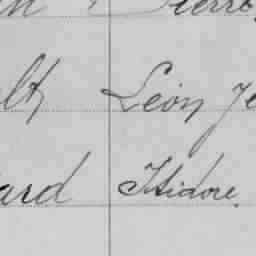 Pierre
lt Léon Je
ard Isidore.